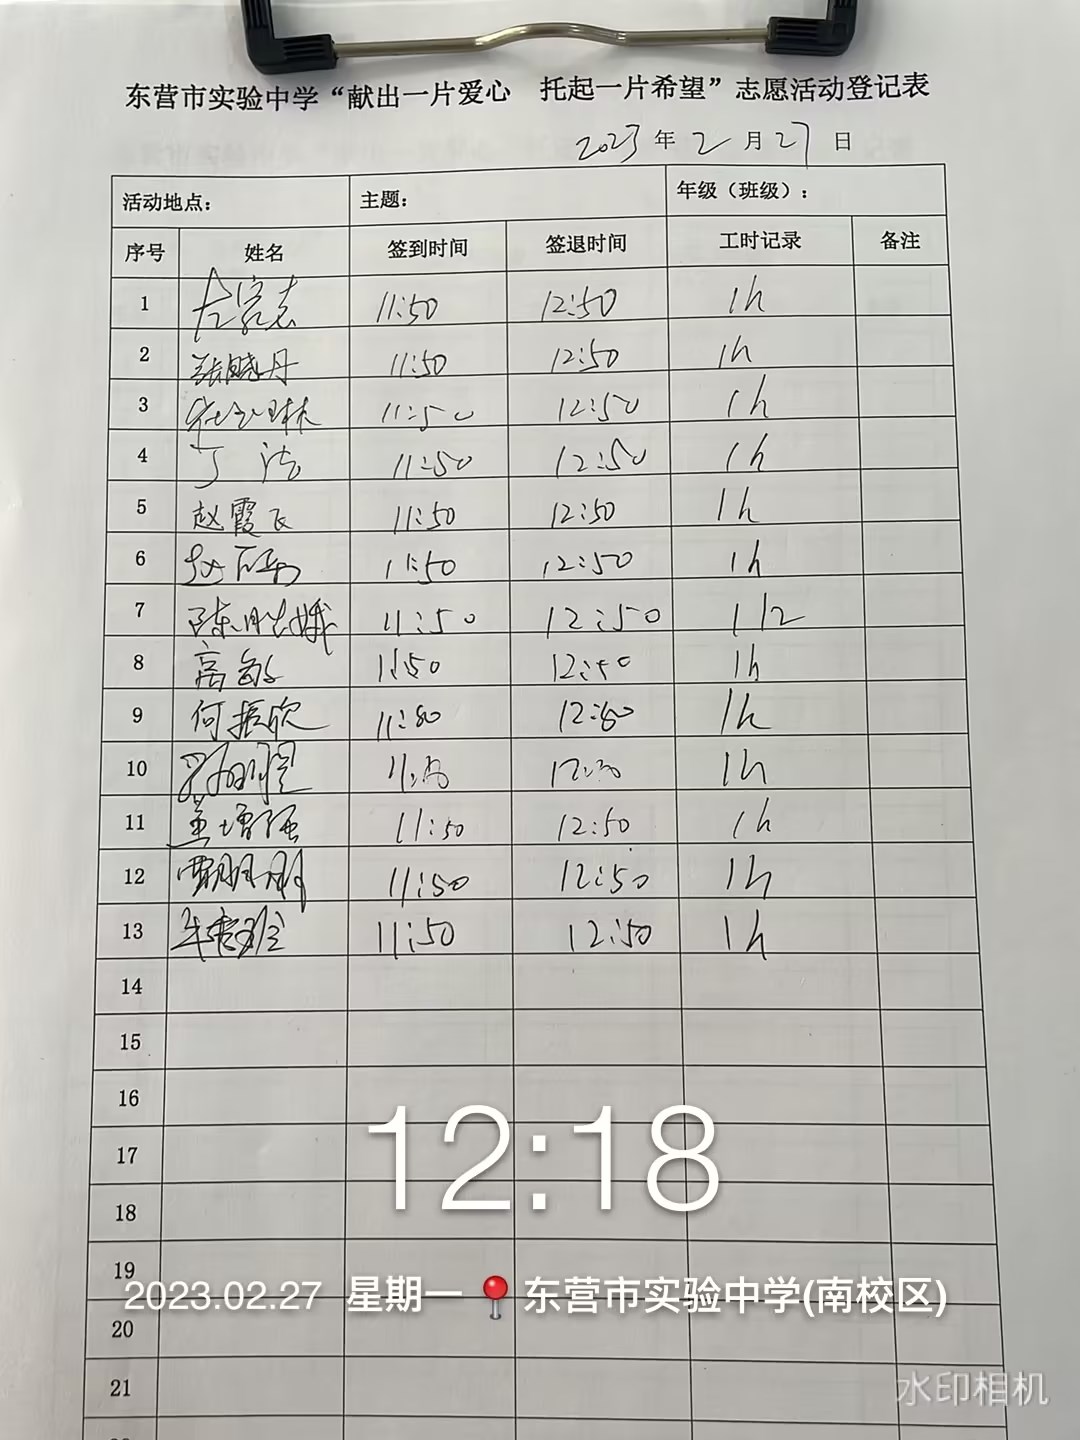 东营市实验中学“献出一片爱心 托起一片希望”志愿活动登记表
2023年2月27日
活动地点： 主题： 年级（班级）：
序号 姓名 签到时间 签退时间 工时记录 备注
1 11:50 12:50 1h
2 张晓丹 11:50 12:50 1h
3 11:50 12:50 1h
4 丁洁 11:50 12:50 1h
5 赵霞飞 11:50 12:50 1h
6 赵 11:50 12:50 1h
7 陈胜娥 11:50 12:50 1h
8 高敏 11:50 12:50 1h
9 何振欣 11:50 12:50 1h
10 11:50 12:50 1h
11 董增强 11:50 12:50 1h
12 贾朋朋 11:50 12:50 1h
13 11:50 12:50 1h
14
15
16
17
18
19
20
21
12:18
2023.02.27 星期一 东营市实验中学(南校区)
水印相机